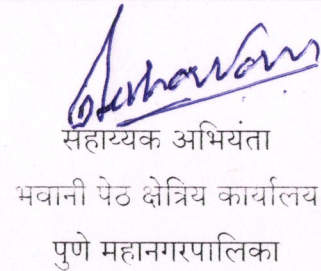 सहाय्यक अभियंता
भवानी पेठ क्षेत्रिय कार्यालय
पुणे महानगरपालिका